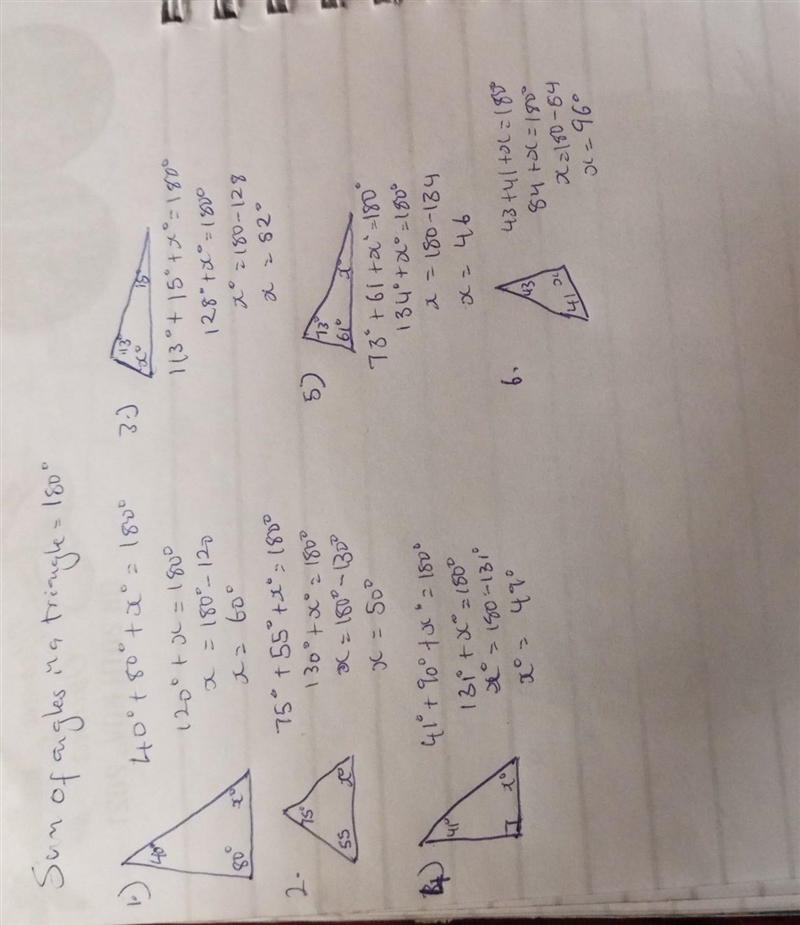 Sum of angles in a triangle = 180°
1.)
40°
80°
x°
40° + 80° + x° = 180°
120° + x = 180°
x = 180° - 120
x = 60°
2.
75°
55
x°
75° + 55° + x° = 180°
130° + x° = 180°
x = 180° - 130°
x = 50°
4)
41°
x°
41° + 90° + x° = 180°
131° + x° = 180°
x° = 180 - 131°
x° = 49°
3.)
113°
x°
15°
113° + 15° + x° = 180°
128° + x° = 180°
x° = 180 - 128
x = 52°
5)
73°
61°
x°
73° + 61 + x° = 180°
134° + x° = 180°
x = 180 - 134
x = 46
6.
43
41
x
43 + 41 + x = 180
84 + x = 180°
x = 180 - 84
x = 96°